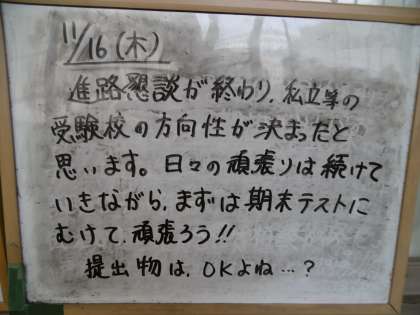 11/16(木)
進路懇談が終わり、私立等の
受験校の方向性が決まったと
思います。日々の頑張りは続けて
いきながら、まずは期末テストに
むけて、頑張ろう!!
提出物は、OKよね…?